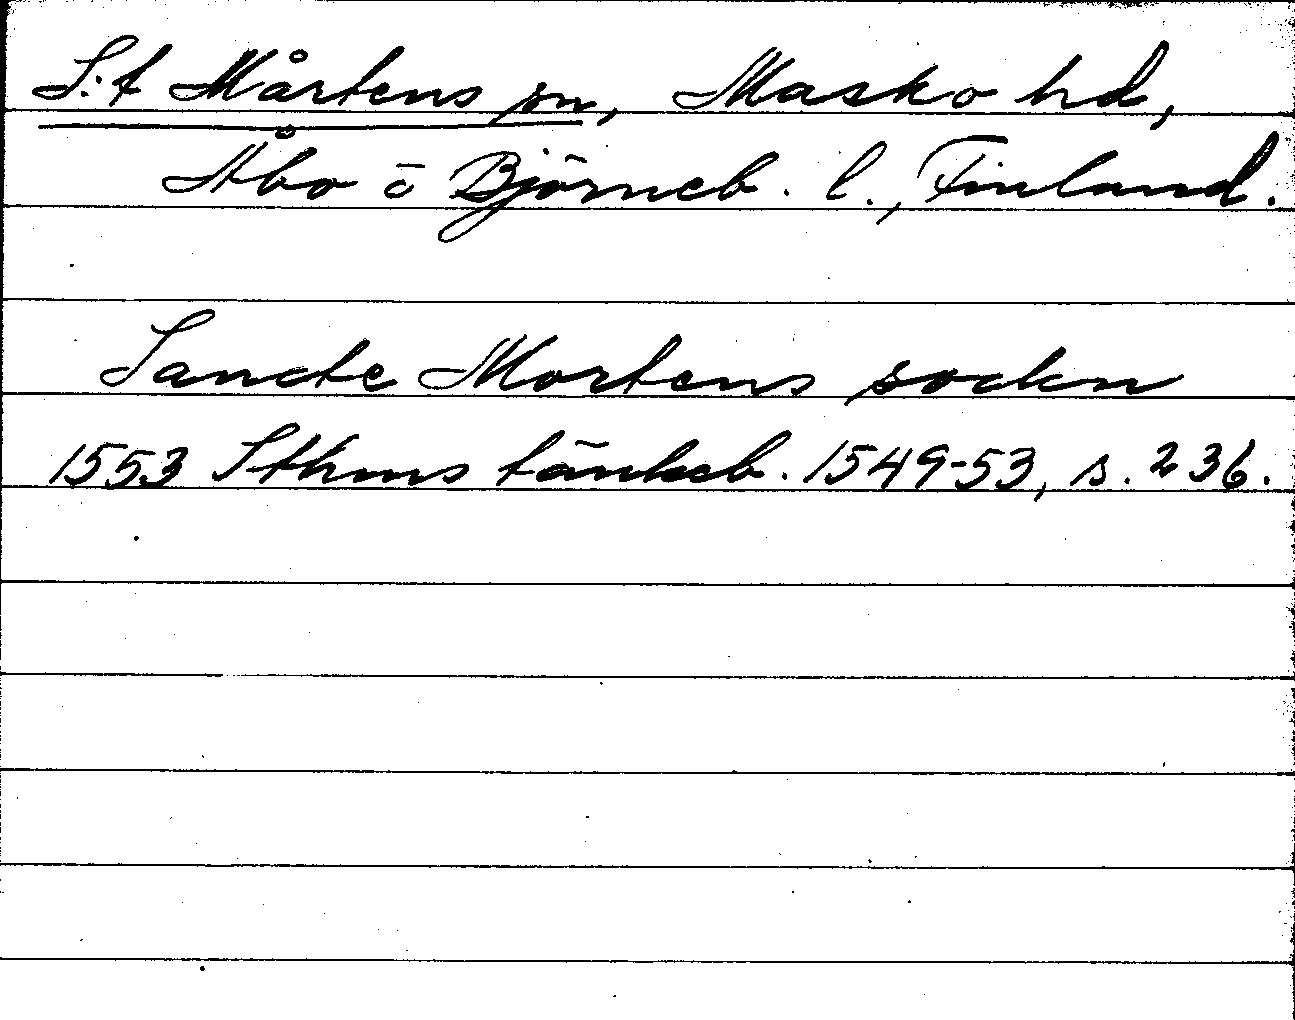 S:t Mårtens sn, Masko hd,
Åbo o Björneb. l., Finland.
Sancte Mortens sockn
1553 Sthms tänkeb. 1549-53, s. 236.